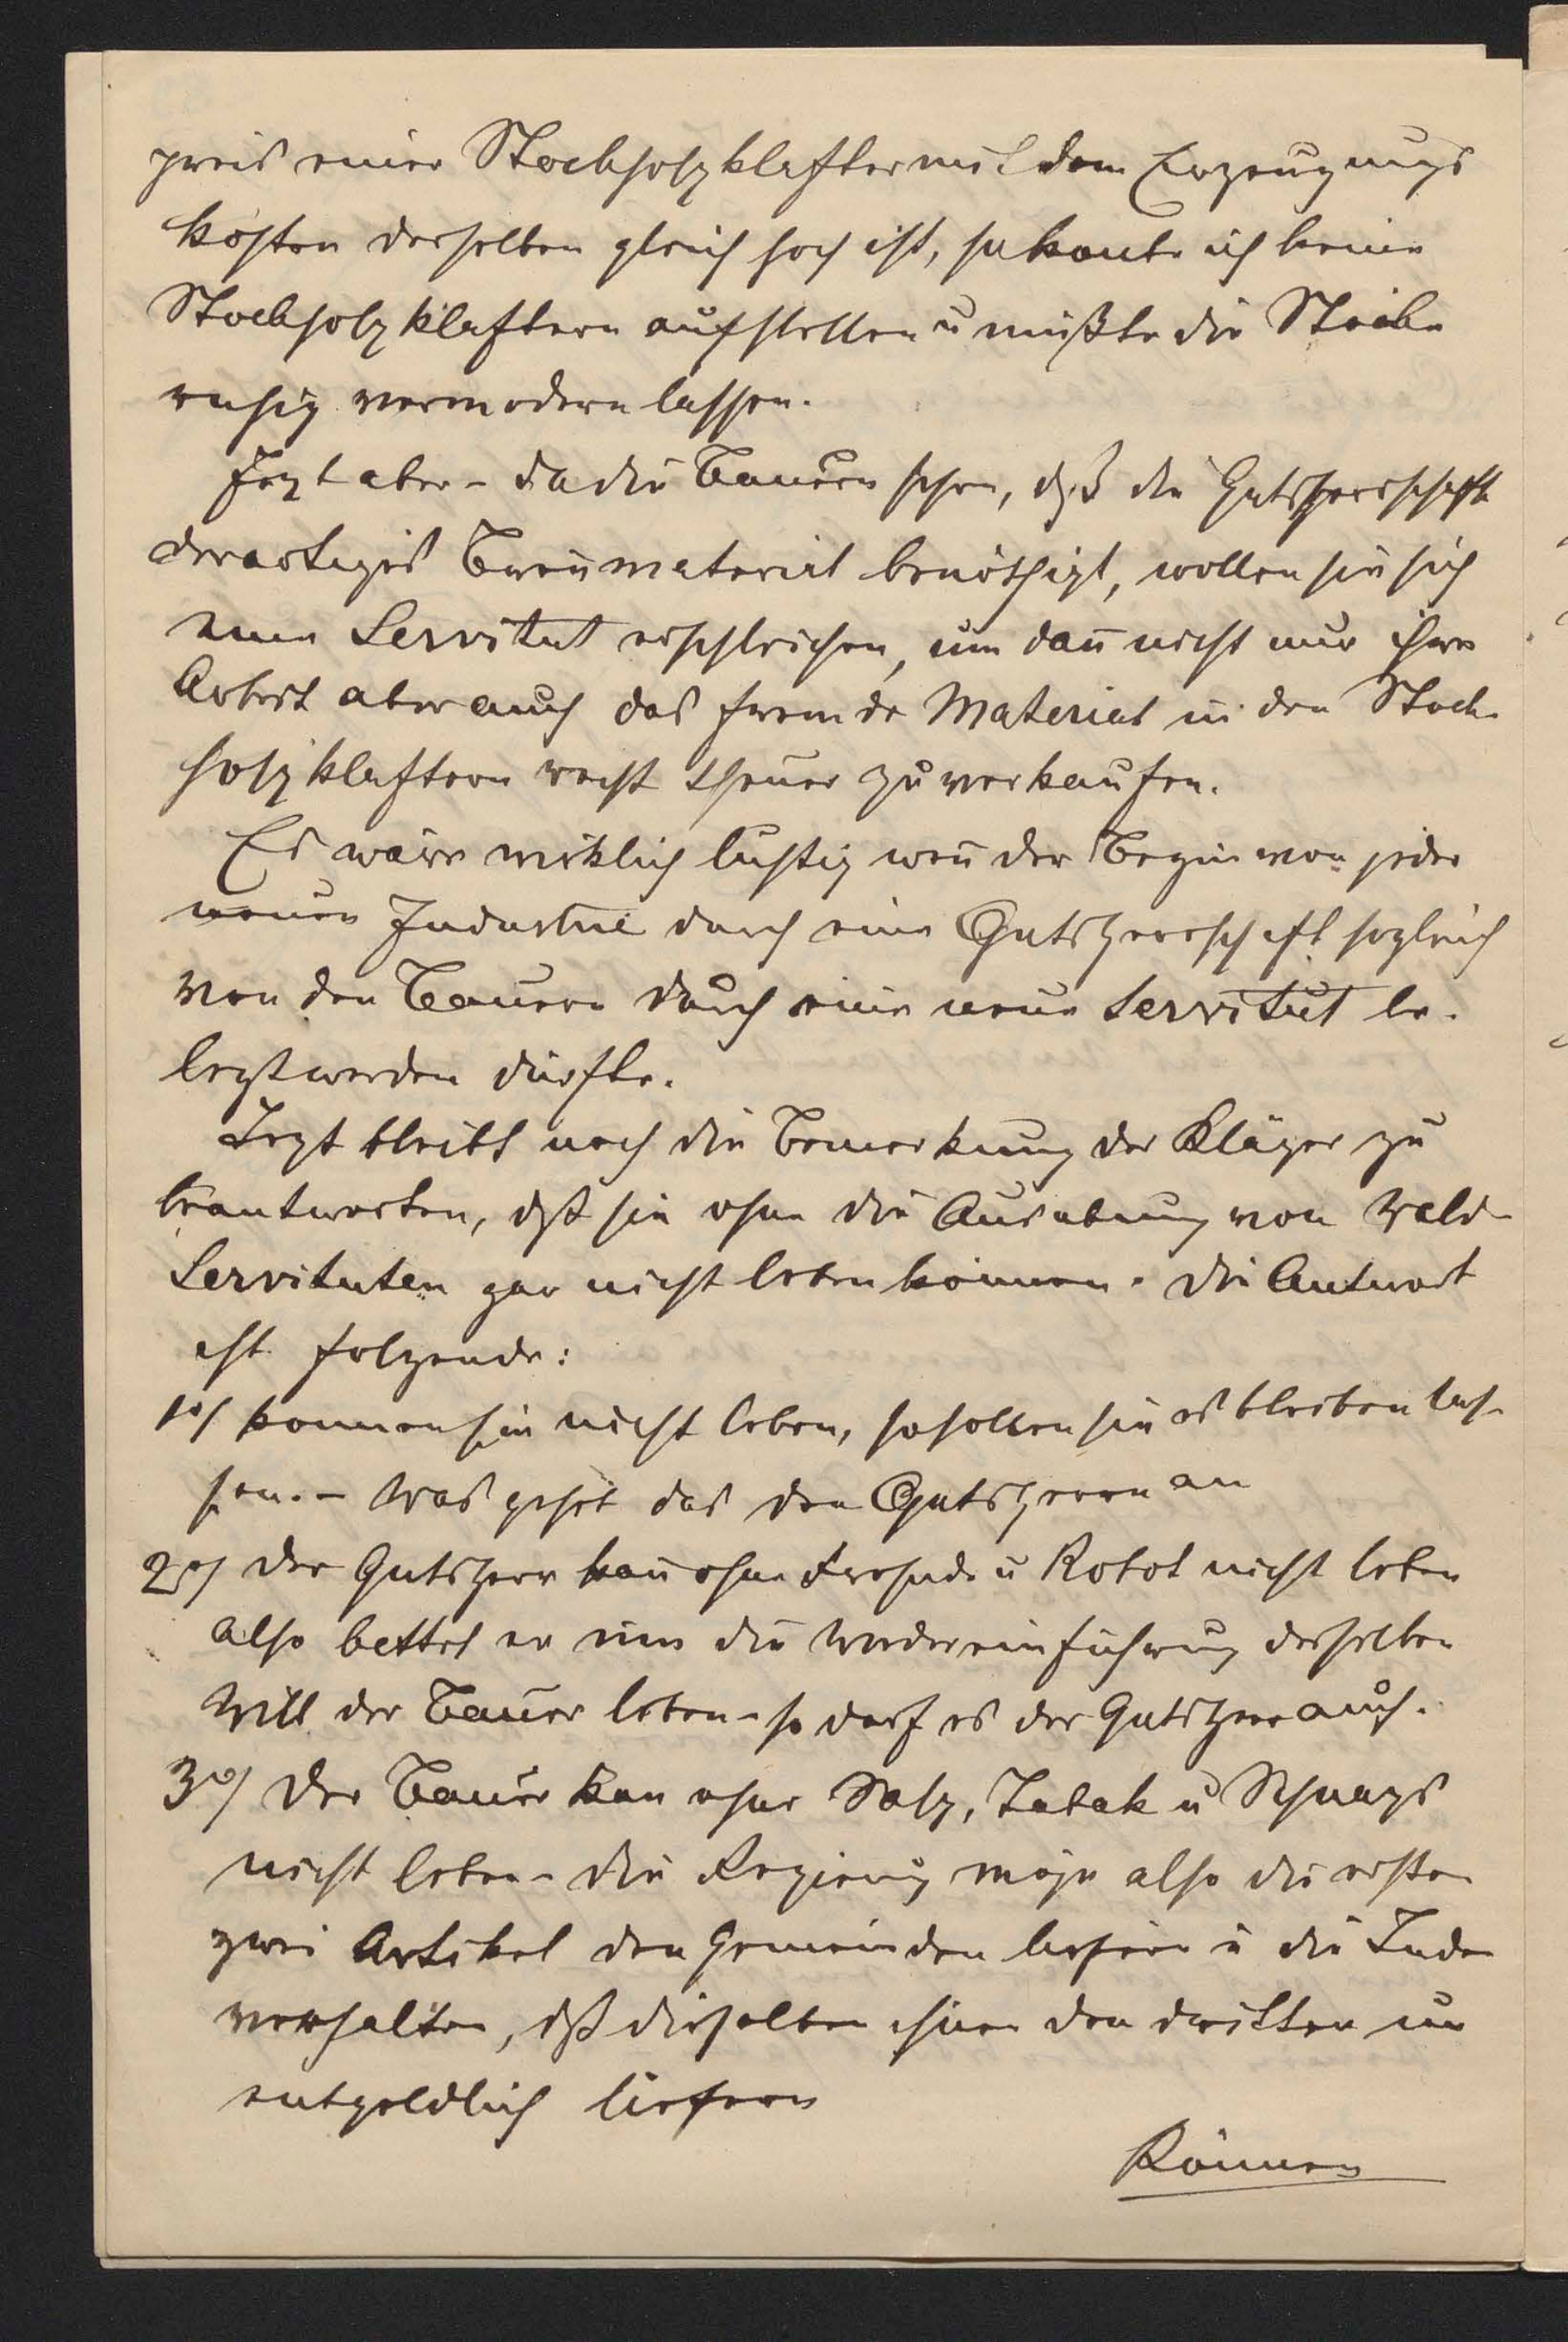 preis einer Stockholzklafter mit dem Erzeugungs
kosten derselben gleich hoch ist, so konte ich keine
Stockholzklaftern aufstellen u mußte die Stöcke
ruhig vermodern lassen.
Jezt aber – da die Bauern sehen, dß die Gutsherrschaft
derartiges Brenmaterial benöthigt, wollen sie sich
eine Servitut erschleichen, um dan̄ nicht nur ihre
Arbeit aber auch das fremde Material in den Stock-
holzklaftern recht theuer zu verkaufen.
Es wäre wirklich lustig wen̄ der Begin von jeder
neuen Industrie durch eine Gutsherrschaft sogleich
von den Bauern durch eine neue Servitut be-
legt werden dürfte.
Jezt bleibt noch die Bemerkung der Kläger zu
beantworten, dß sie ohne die Ausübung von Wald-
Servituten gar nicht leben können. Die Antwort
ist folgende:
1o/ können sie nicht leben, so sollen sie es bleiben las-
sen. – Was gehet das den Gutsherrn an
2o/ der Gutsherr kan̄ ohne Frohnde u Robot nicht leben
also bettet er um die Wiedereinführung derselben
Will der Bauer leben – so darf es der Gutsherr auch.
3o/ Der Bauer kan ohne Salz, Tabak u Schnaps
nicht leben – die Regierung möge also die ersten
zwei Artikel den Gemeinden liefern u die Juden
verhalten, dß dieselben ihnen den dritten un
entgeldlich liefern
Können